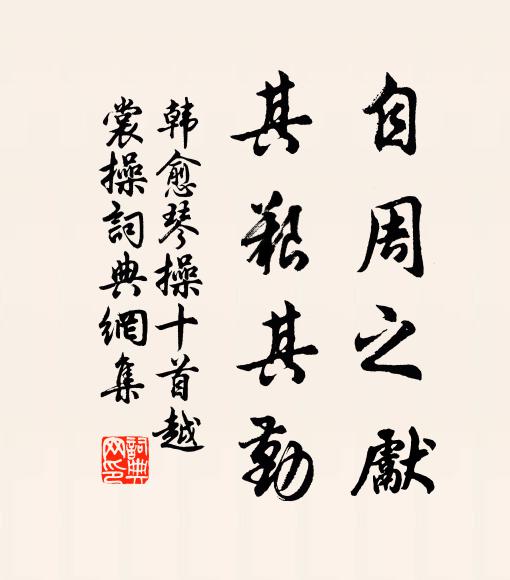 自周之獻
其艱其勤
韓愈琴操十首越
裳操詞典網集
詞典
网印